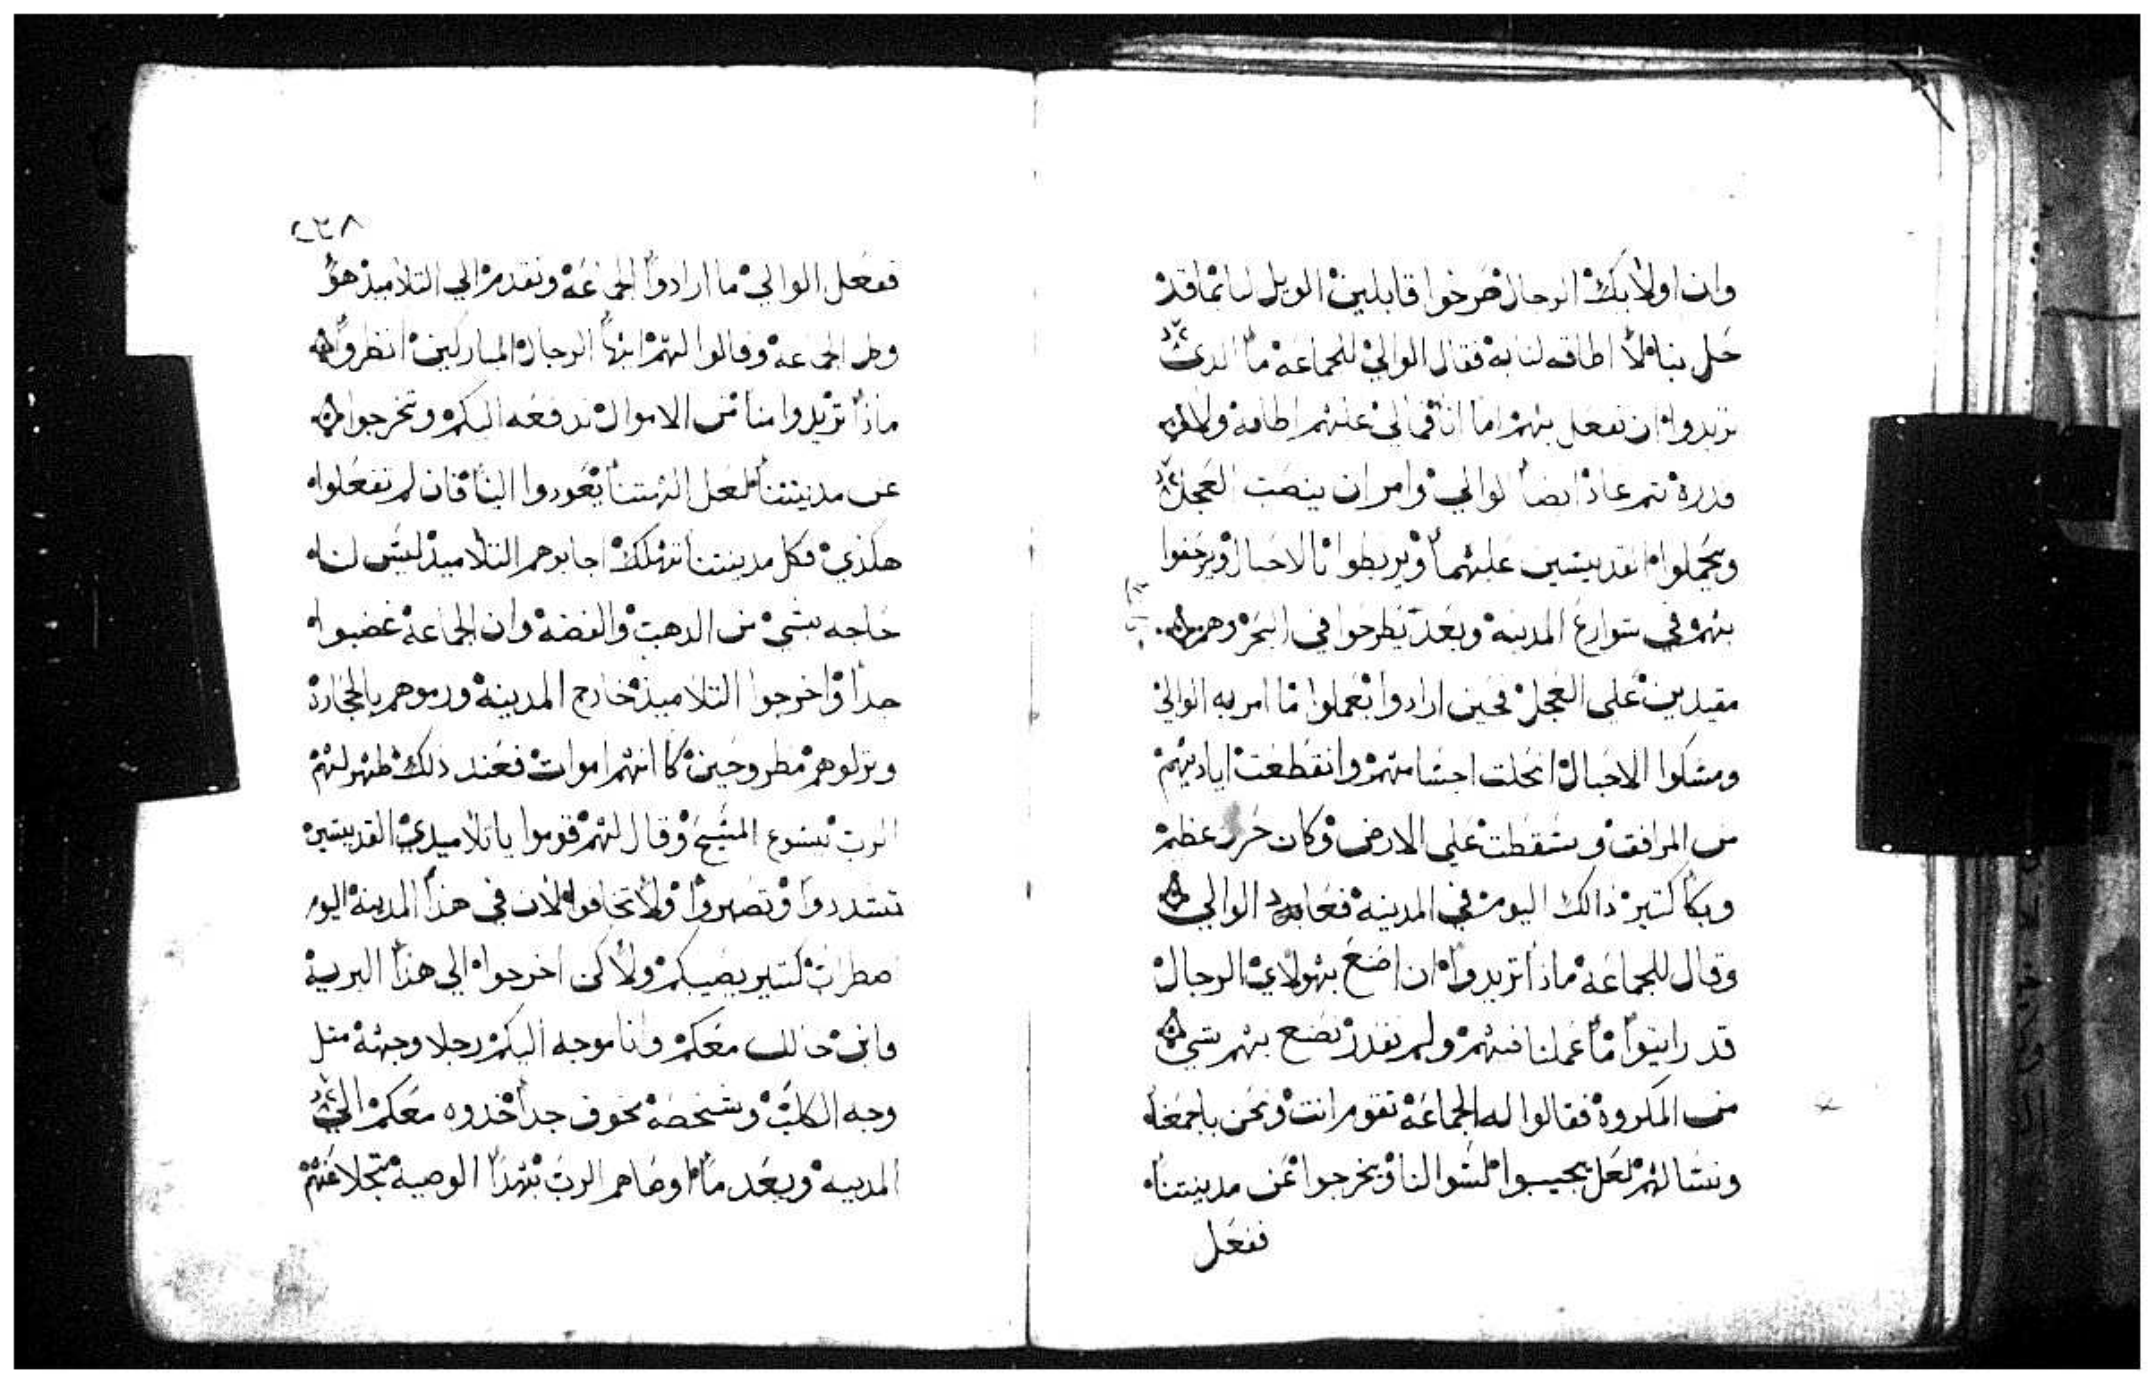 وان اولايك الرجال صرخوا قايلين الويل لنا ثما قد
حل بنا لا اطاقه لنا به فقال الوالي للجماعه ما الدي
تريدوا ان نفعل بهم اما انا فمالي عليهم اطاقه ولا
قدره تم عاد ايضا الوالي وامر ان ينصب العجل
ويحملوا القديسين عليهما ويربطوا بالاحبال ويزحفوا
بهم في شوارع المدينه وبعد يطرحوا في البحر وهم
مقيدين على العجل فحين ارادوا يعملوا ما امر به الوالي
ومسكوا الاحبال انحلت اجسامهم وانقطعت اياديهم
من المرافق وسقطت على الارض وكان حزن عظيم
وبكا كتير ذالك اليوم في المدينه فعاد الوالي
وقال للجماعه ماذا تريدوا ان اصنع بهولاي الرجال
قد راتيوا ما عملنا فيهم ولم نقدر نصنع بهم شي
من المكروه فقالوا له الجماعه تقوم انت ونحن باجمعنا
ونسالهم لعل يجيبوا لسوالنا ويخرجوا عن مدينتنا
ففعل
٢٣٨
ففعل الوالي ما ارادوا الجماعه وتقدم الي التلاميد هو
وكل الجماعه وقالوا لهم ايها الرجال المباركين انظروا
ماذا تريدوا منا من الاموال ندفعه اليكم وتخرجوا
عن مدينتنا لعل الهتنا يعودوا الينا فان لم تفعلوا
هكذي فكل مدينتنا تهلك اجابوهم التلاميد ليس لنا
حاجه بشي من الدهب والفضه وان الجماعه غضبوا
جدا واخرجوا التلاميد خارج المدينه ورموهم بالحجاره
وتركوهم مطروحين كا انهم اموات فعند ذلك ظهر لهم
الرب يسوع المسيح وقال لهم قوموا يا تلاميدي القديسين
تشددوا وتصبروا ولا تخافوا لان في هذا المدينه اليوم
اضطراب كتير يصيبكم ولاكن اخرجوا الي هذا البريه
فانى معكم وانا موجه اليكم رجلا وجهه متل
وجه الكلب وشخصه مخوف جدا خدوه معكم الي
المدينه وبعد ما اوصاهم الرب بهدا الوصيه تجلا عنهم